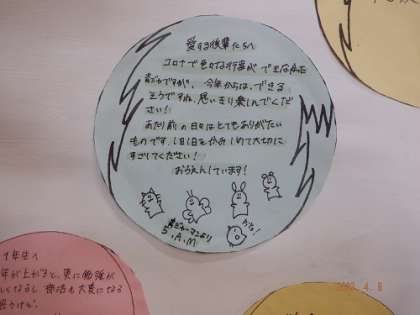 愛する後輩たちへ
コロナで色々な行事ができな
ですが、今年からは、できる
そうですね。思いきり楽しんでくだ
さい!
あたり前の日々はとてもありがたい
ものです。1日1日をかみしめて大切に
すごしてください!
おうえんしています!
マンより
S.A.M
1年生へ
年が上がると、更に勉強が
しくなるし、部活も大変になる
4. 8